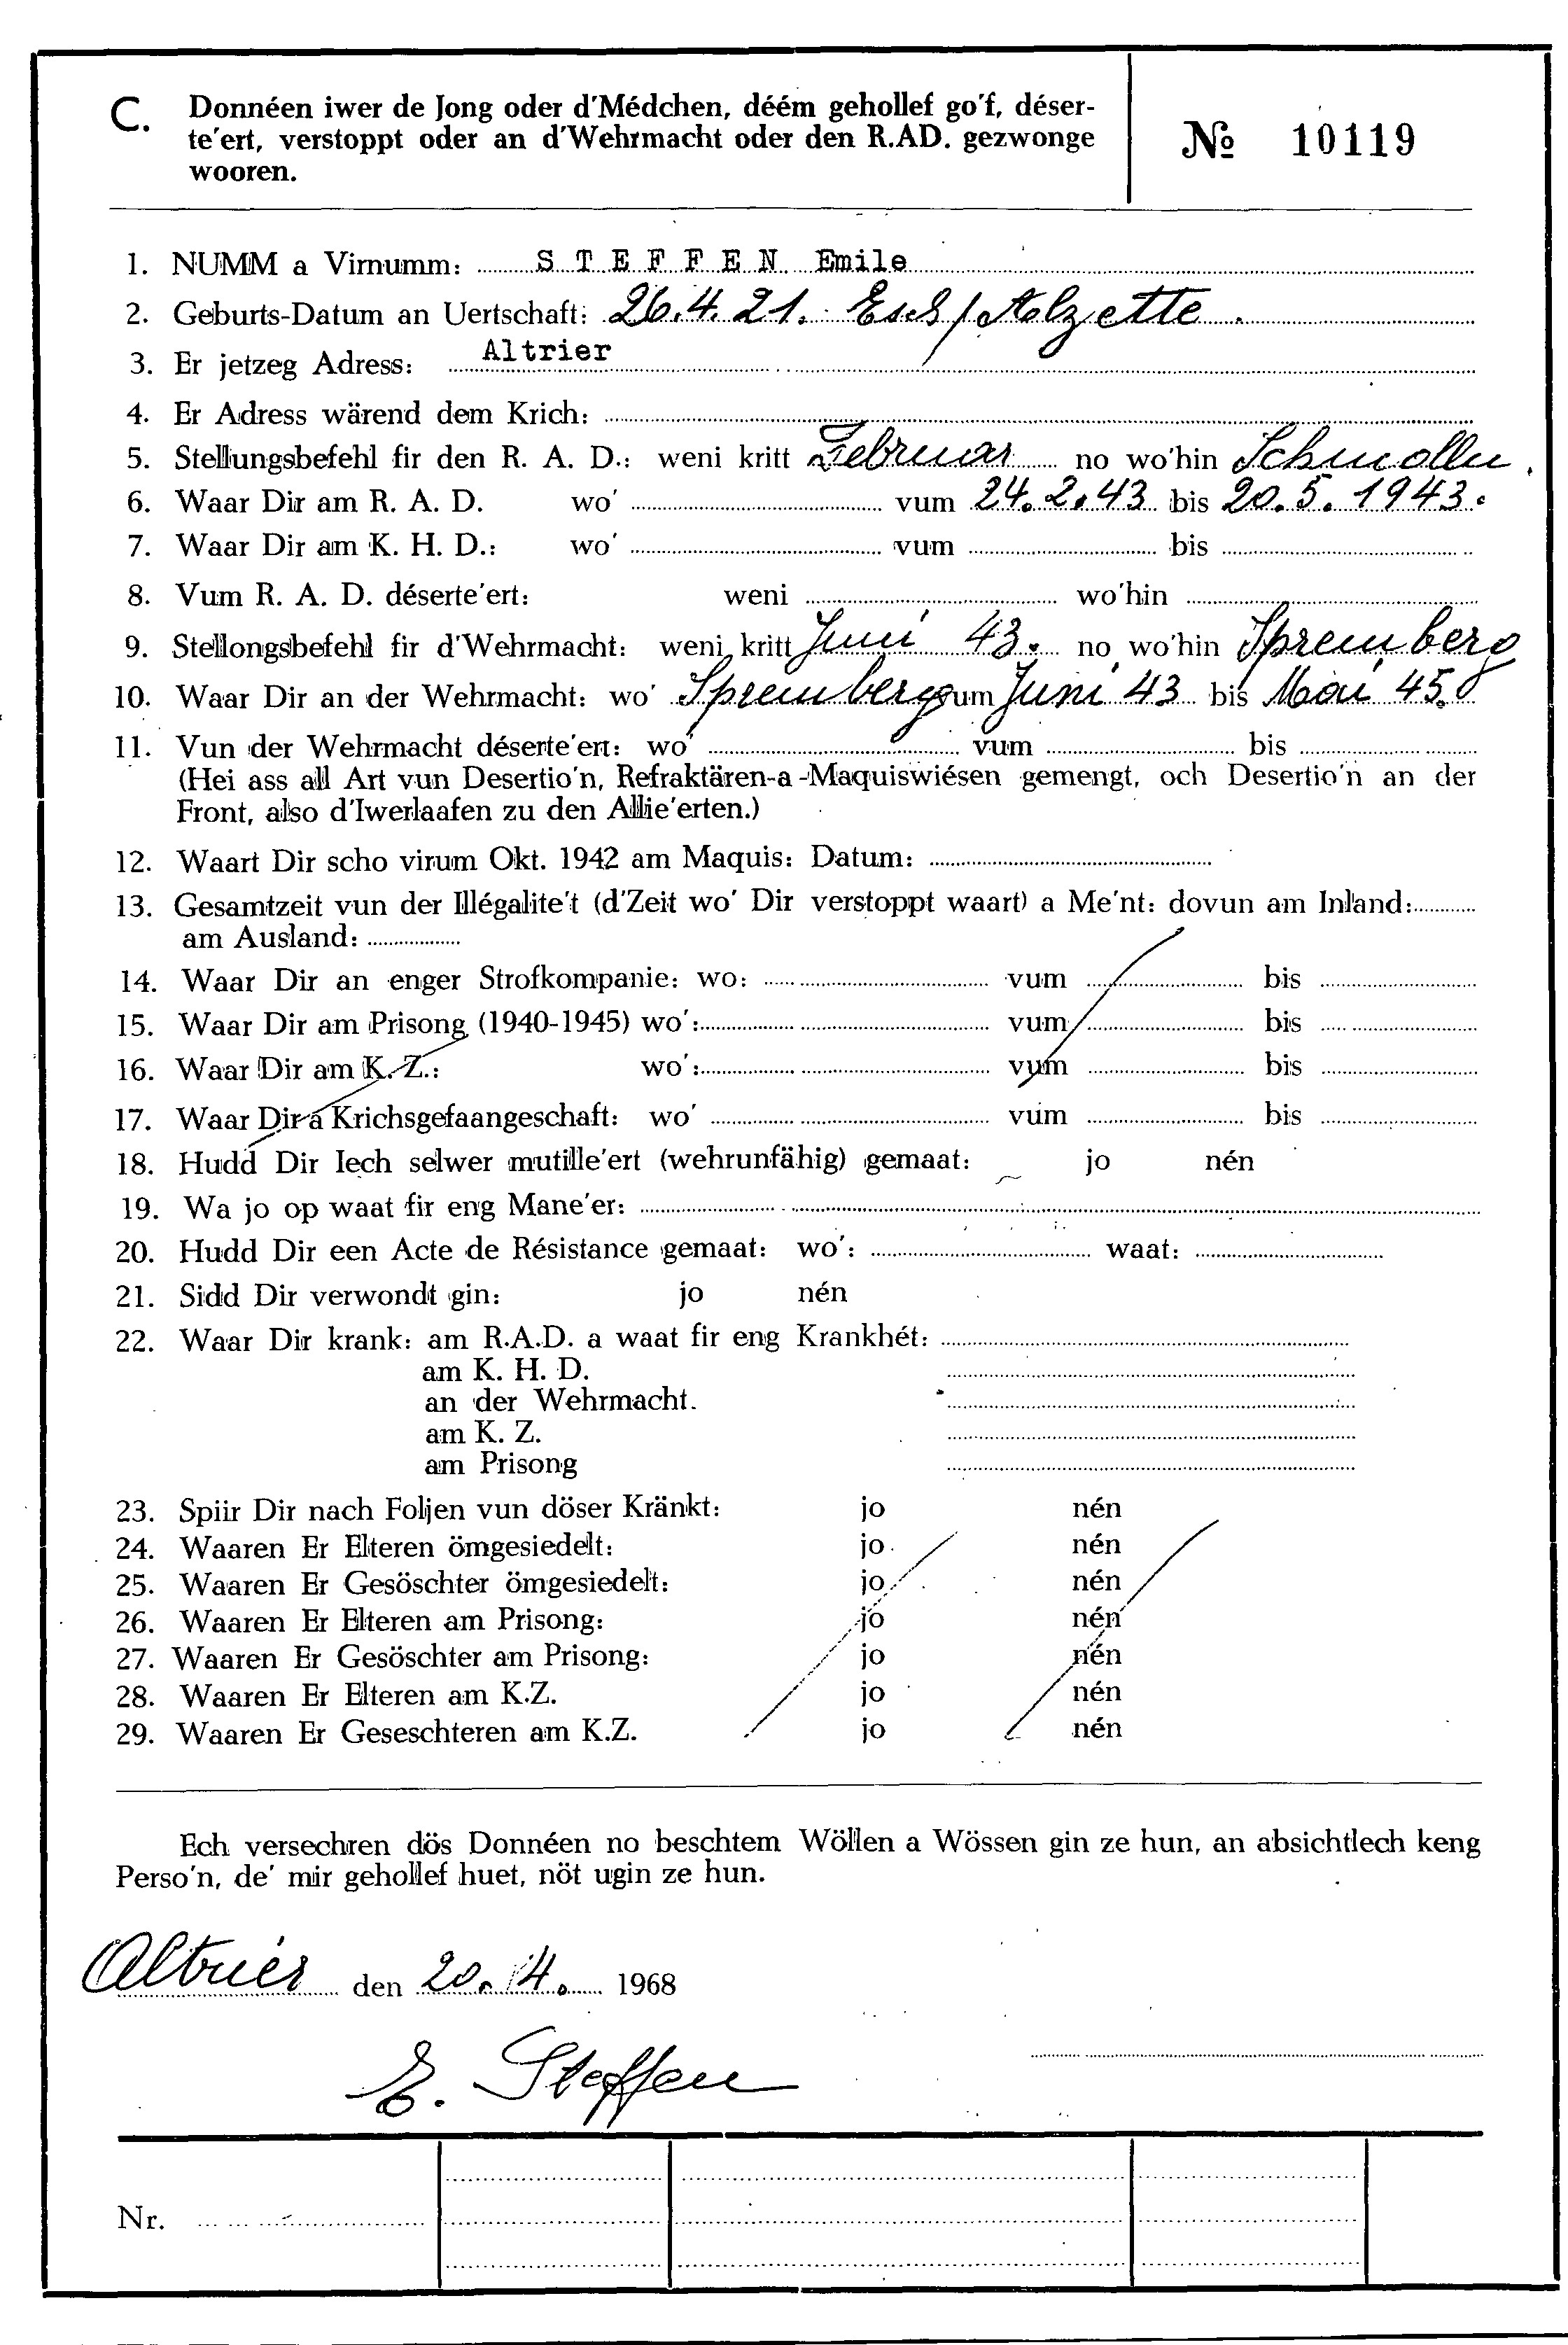 C. Donnéen iwer de Jong oder d'Médchen, déém gehollef go'f, déser-
te'ert, verstoppt oder an d'Wehrmacht oder den R.AD. gezwonge
wooren.
№ 10119
1. NUMM a Virnumm: STEFFEN Emile
2. Geburts-Datum an Uertschaft: 26.4.21. Esch/Alzette.
3. Er jetzeg Adress: Altrier
4. Er Adress wärend dem Krich:
5. Stellungsbefehl fir den R. A. D.: weni kritt Februar no wo'hin Schmolln.
6. Waar Dir am R. A. D. wo' vum 24.2.43 bis 20.5.1943.
7. Waar Dir am K. H. D.: wo' vum bis
8. Vum R. A. D. déserte'ert: weni wo'hin
9. Stellongsbefehl fir d'Wehrmacht: weni kritt Juni 43. no wo'hin Spremberg
10. Waar Dir an der Wehrmacht: wo' Spremberg vum Juni 43 bis Mai 45.
11. Vun der Wehrmacht déserte'ert: wo' vum bis
(Hei ass all Art vun Desertio'n, Refraktären-a-Maquiswiésen gemengt, och Desertio'n an der
Front, also d'Iwerlaafen zu den Allie'erten.)
12. Waart Dir scho virum Okt. 1942 am Maquis: Datum:
13. Gesamtzeit vun der Illégalite't (d'Zeit wo' Dir verstoppt waart) a Me'nt: dovun am Inland:
am Ausland:
14. Waar Dir an enger Strofkompanie: wo: vum bis
15. Waar Dir am Prisong (1940-1945) wo': vum bis
16. Waar Dir am K. Z.: wo': vum bis
17. Waar Dir a Krichsgefaangeschaft: wo' vum bis
18. Hudd Dir Iech selwer mutille'ert (wehrunfähig) gemaat: jo nén
19. Wa jo op waat fir eng Mane'er:
20. Hudd Dir een Acte de Résistance gemaat: wo': waat:
21. Sidd Dir verwondt gin: jo nén
22. Waar Dir krank: am R.A.D. a waat fir eng Krankhét:
am K. H. D.
an der Wehrmacht.
am K. Z.
am Prisong
23. Spiir Dir nach Foljen vun döser Kränkt: jo nén
24. Waaren Er Elteren ömgesiedelt: jo nén
25. Waaren Er Gesöschter ömgesiedelt: jo nén
26. Waaren Er Elteren am Prisong: jo nén
27. Waaren Er Gesöschter am Prisong: jo nén
28. Waaren Er Elteren am K.Z. jo nén
29. Waaren Er Geseschteren am K.Z. jo nén
Ech versechren dös Donnéen no beschtem Wöllen a Wössen gin ze hun, an absichtlech keng
Perso'n, de' mir gehollef huet, nöt ugin ze hun.
Altrier den 20.4. 1968
E. Steffen
Nr.